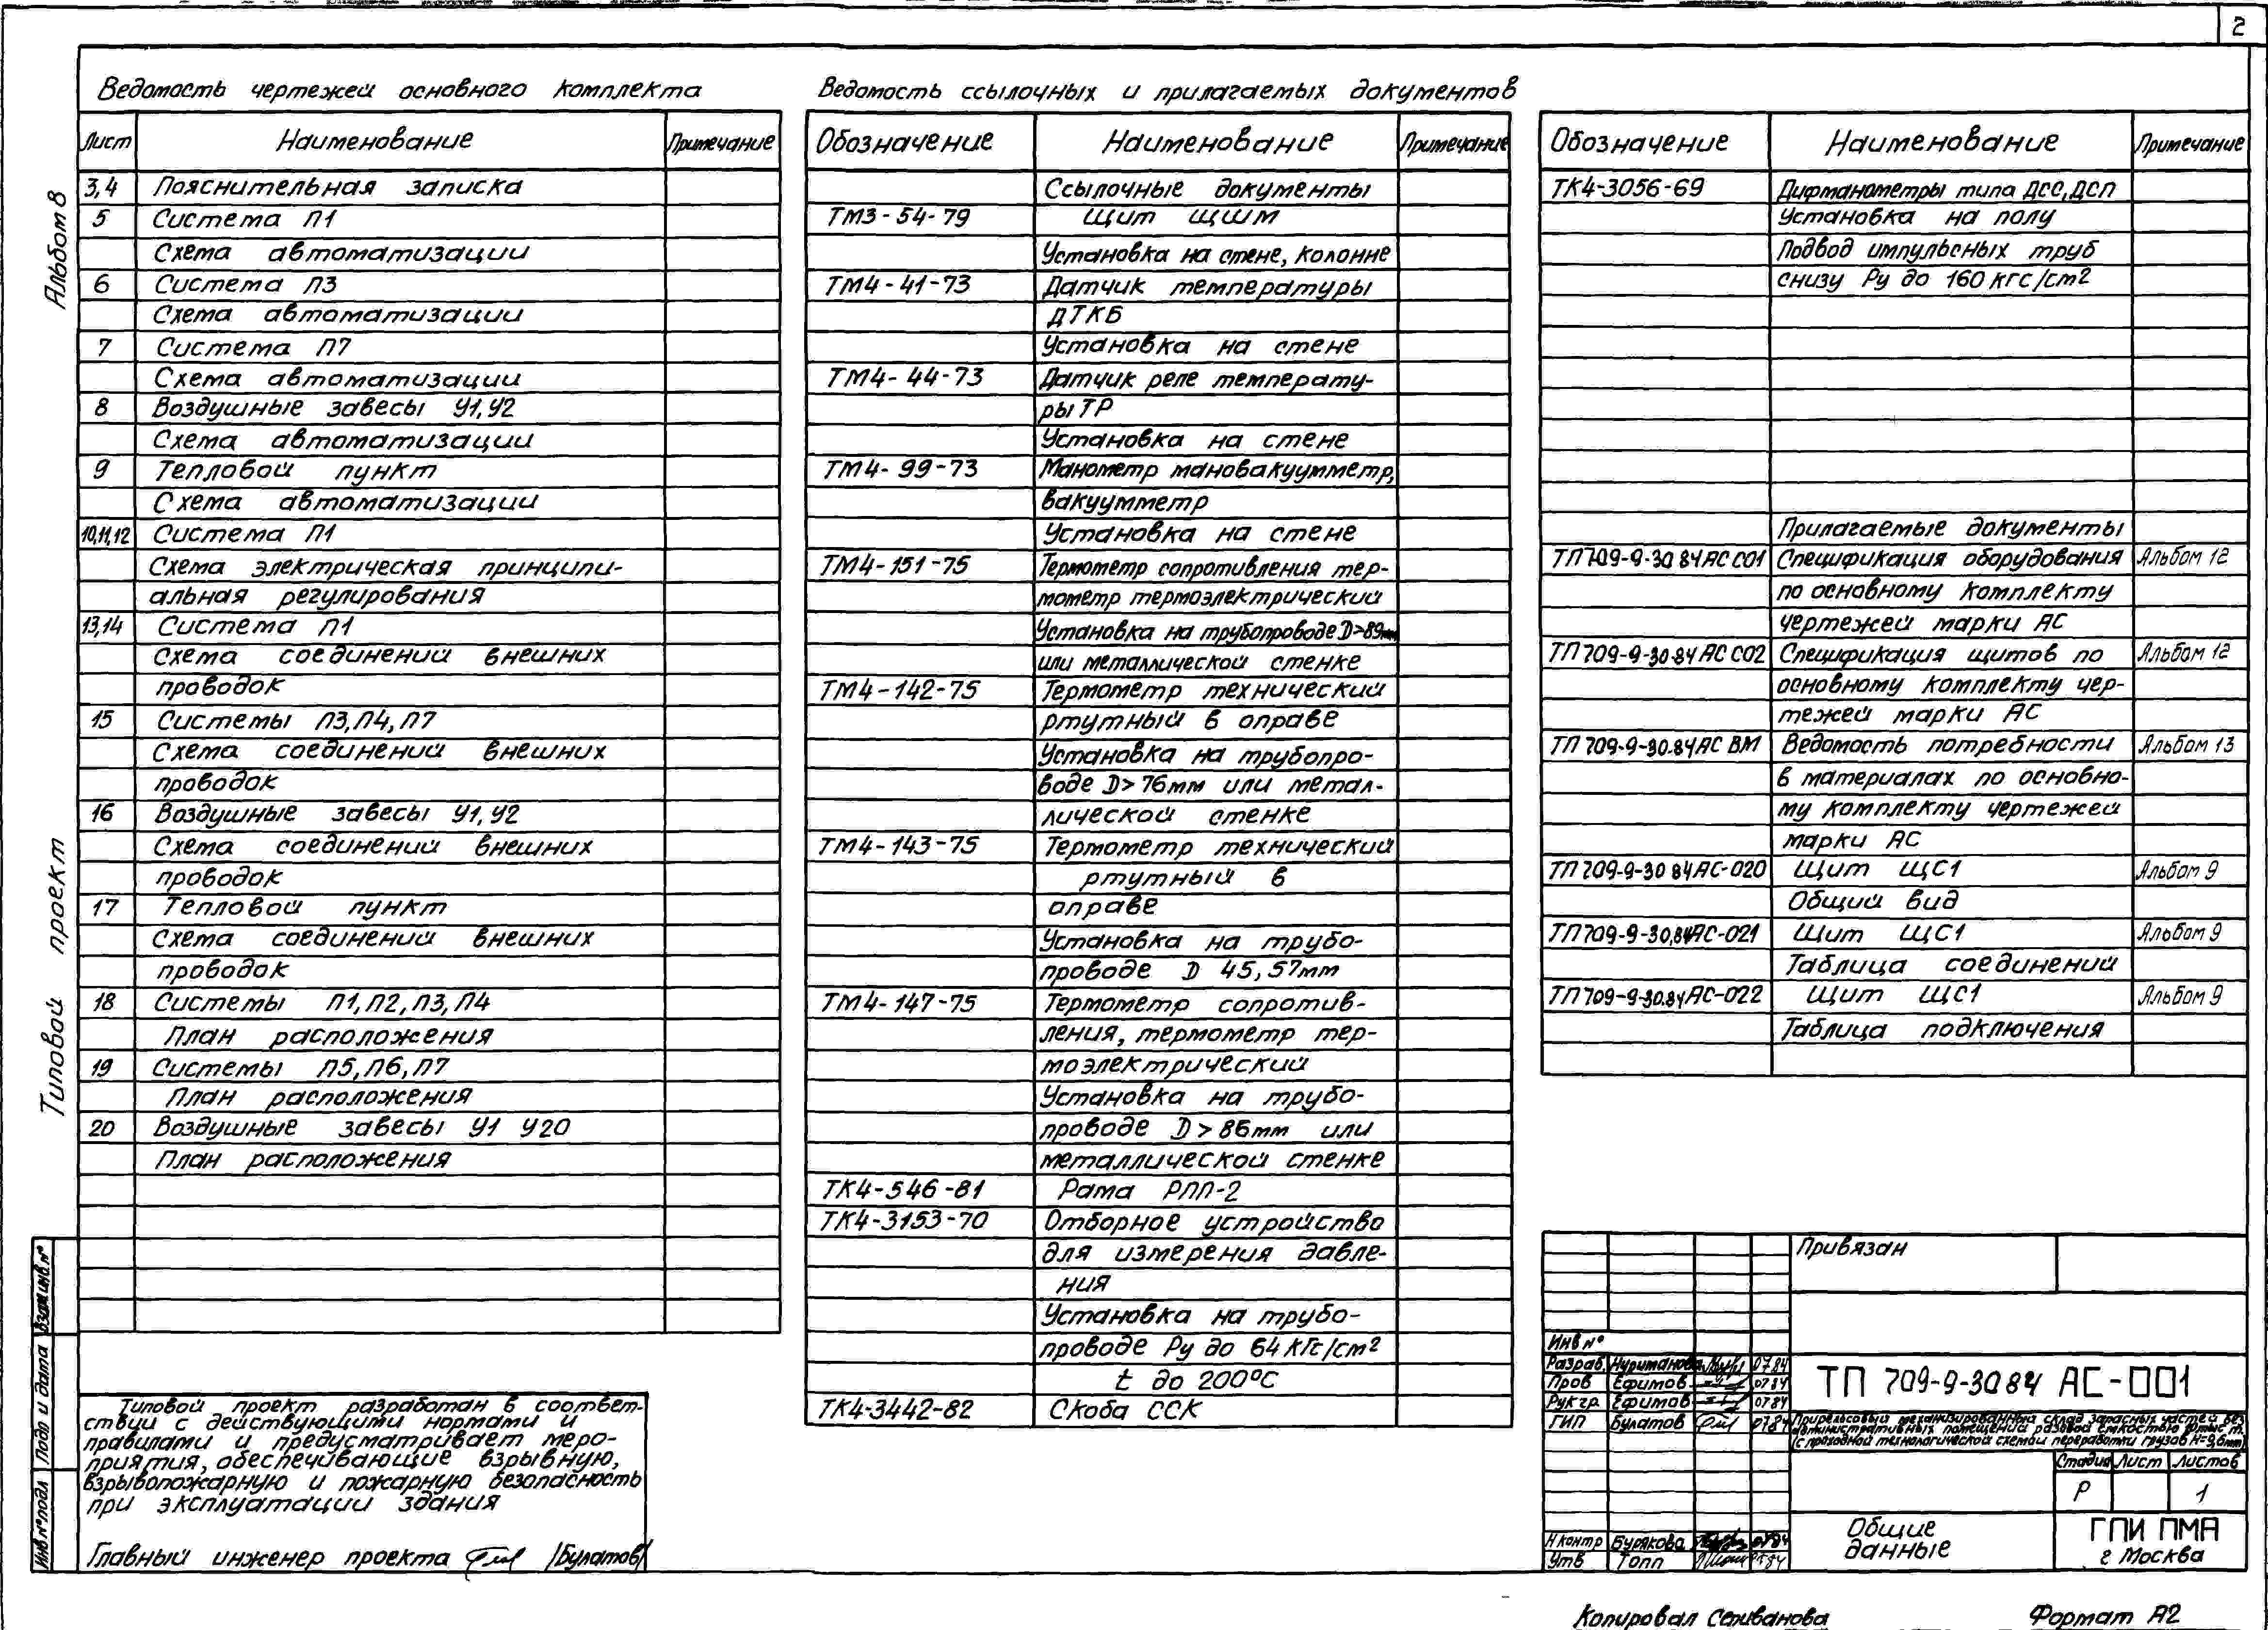 2
Ведомость чертежей основного комплекта
Лист Наименование Примечание
3,4 Пояснительная записка
5 Система П1
Схема автоматизации
6 Система П3
Схема автоматизации
7 Система П7
Схема автоматизации
8 Воздушные завесы У1,У2
Схема автоматизации
9 Тепловой пункт
Схема автоматизации
10,11,12 Система П1
Схема электрическая принципи-
альная регулирования
13,14 Система П1
Схема соединений внешних
проводок
15 Системы П3,П4,П7
Схема соединений внешних
проводок
16 Воздушные завесы У1,У2
Схема соединений внешних
проводок
17 Тепловой пункт
Схема соединений внешних
проводок
18 Системы П1,П2,П3,П4
План расположения
19 Системы П5,П6,П7
План расположения
20 Воздушные завесы У1 У20
План расположения
Ведомость ссылочных и прилагаемых документов
Обозначение Наименование Примечание
Ссылочные документы
ТМ3-54-79 Щит ЩШМ
Установка на стене, колонне
ТМ4-41-73 Датчик температуры
ДТКБ
Установка на стене
ТМ4-44-73 Датчик реле температу-
ры ТР
Установка на стене
ТМ4-99-73 Манометр мановакуумметр,
вакуумметр
Установка на стене
ТМ4-151-75 Термометр сопротивления тер-
мометр термоэлектрический
Установка на трубопроводе D>89мм
или металлической стенке
ТМ4-142-75 Термометр технический
ртутный в оправе
Установка на трубопро-
воде D>76мм или метал-
лической стенке
ТМ4-143-75 Термометр технический
ртутный в
оправе
Установка на трубо-
проводе D 45,57мм
ТМ4-147-75 Термометр сопротив-
ления, термометр тер-
моэлектрический
Установка на трубо-
проводе D>86мм или
металлической стенке
ТК4-546-81 Рама РПП-2
ТК4-3153-70 Отборное устройство
для измерения давле-
ния
Установка на трубо-
проводе Ру до 64 кгс/см2
t до 200°С
ТК4-3442-82 Скоба ССК
Обозначение Наименование Примечание
ТК4-3056-69 Дифманометры типа ДСС,ДСП
Установка на полу
Подвод импульсных труб
снизу Ру до 160 кгс/см2
Прилагаемые документы
ТП709-9-30 84 АС СО1 Спецификация оборудования Альбом 12
по основному комплекту
чертежей марки АС
ТП709-9-30.84 АС СО2 Спецификация щитов по Альбом 12
основному комплекту чер-
тежей марки АС
ТП709-9-30.84 АС ВМ Ведомость потребности Альбом 13
в материалах по основно-
му комплекту чертежей
марки АС
ТП709-9-30 84 АС-020 Щит ЩС1 Альбом 9
Общий вид
ТП709-9-30.84АС-021 Щит ЩС1 Альбом 9
Таблица соединений
ТП709-9-30.84 АС-022 Щит ЩС1 Альбом 9
Таблица подключения
Альбом 8
Типовой проект
Взам инв №
Подп и дата
Инв № подл
Типовой проект разработан в соответ-
ствии с действующими нормами и
правилами и предусматривает меро-
приятия, обеспечивающие взрывную,
взрывопожарную и пожарную безопасность
при эксплуатации здания
Главный инженер проекта /Булатов/
Привязан
Инв №
Разраб. Нуриманова 07.84
Пров Ефимов 07 84
Рук гр. Ефимов 07 84
ГИП Булатов 07 84
Н контр Бурякова 07 84
Утв Топп 07 84
ТП 709-9-30 84 АС-001
Прирельсовый механизированный склад запасных частей без
административных помещений разовой емкостью
(с проходной технологической схемой переработки грузов Н=9,6мм)
Стадия Лист Листов
Р 1
Общие
данные
ГПИ ПМА
г Москва
Копировал Селиванова Формат А2